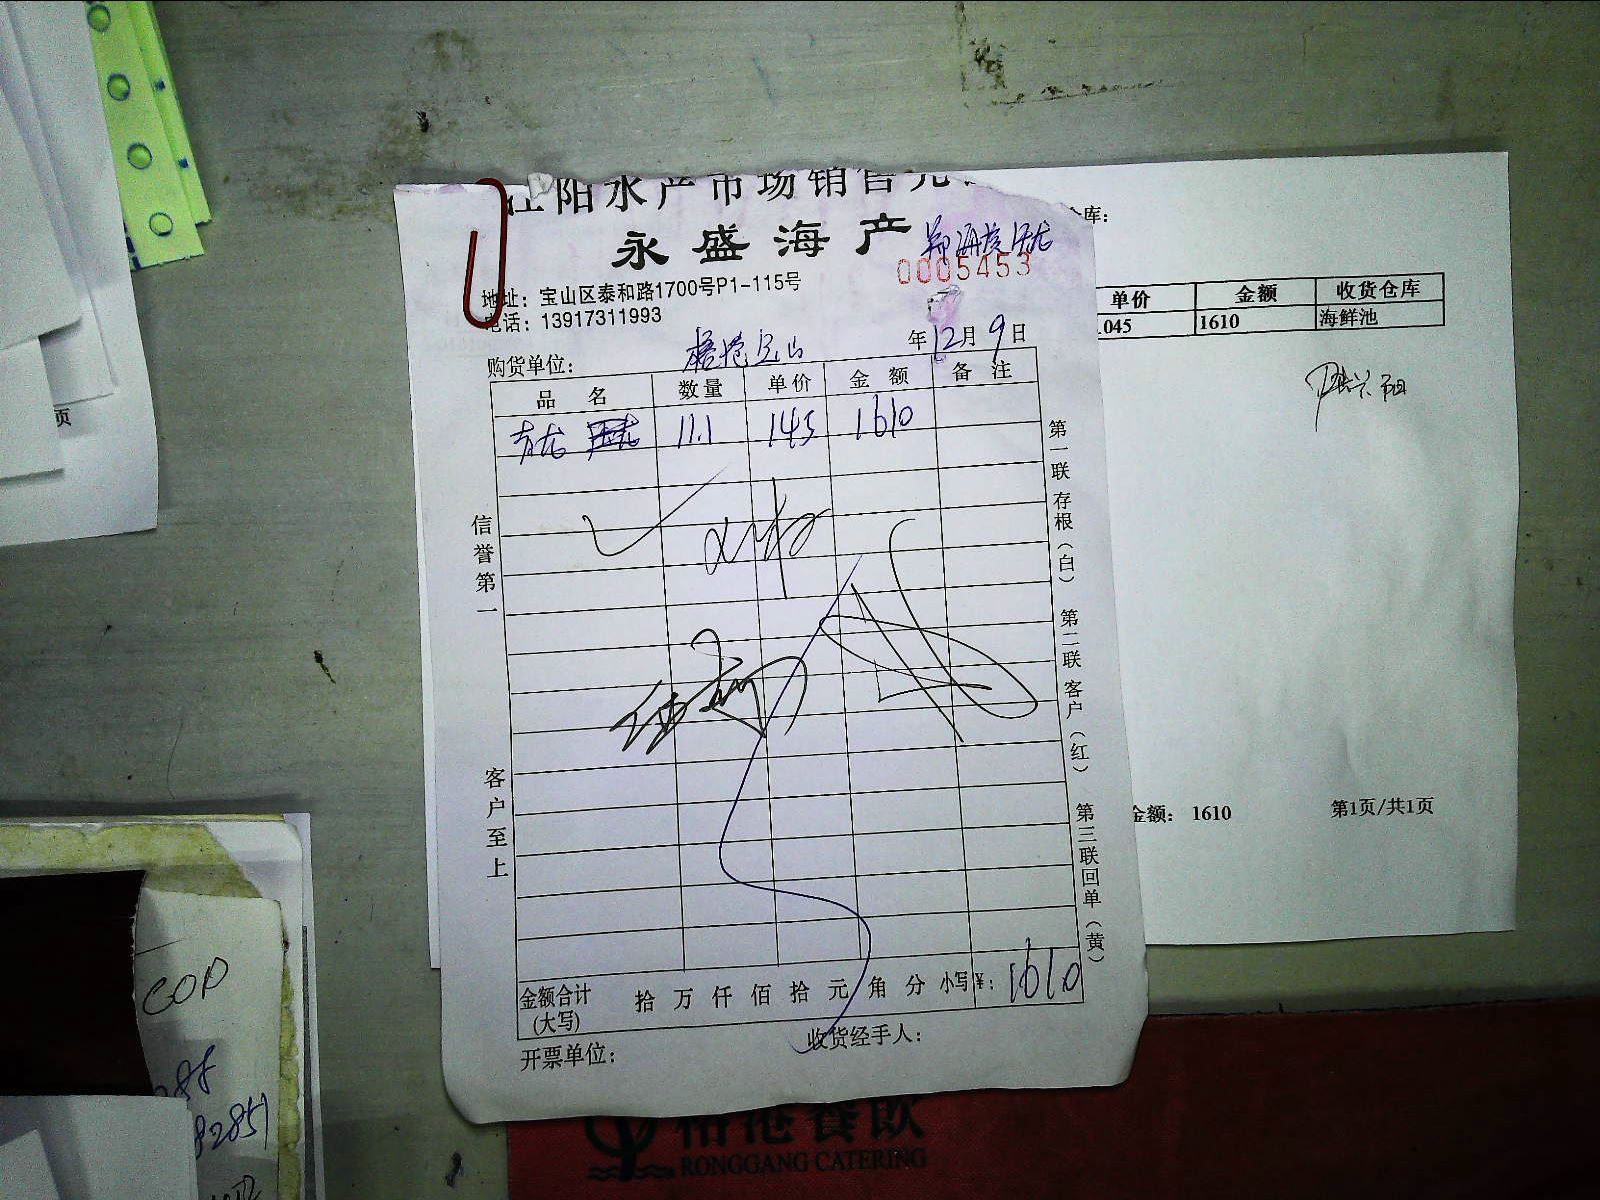 江阳水产市场销售凭
永盛海产
0005453
地址：宝山区泰和路1700号P1-115号
电话：13917311993
年12月9日
购货单位：
品 名 数量 单价 金 额 备 注
青龙 11.1 145 1610
信誉第一
客户至上
第一联存根（白） 第二联客户（红） 第三联回单（黄）
金额合计 拾 万 仟 佰 拾 元 角 分 小写¥：1610
(大写)
开票单位： 收货经手人：
仓库：
单价 金额 收货仓库
.045 1610 海鲜池
金额： 1610 第1页/共1页
页
COD
288
82851
榕港餐飲
RONGGANG CATERING